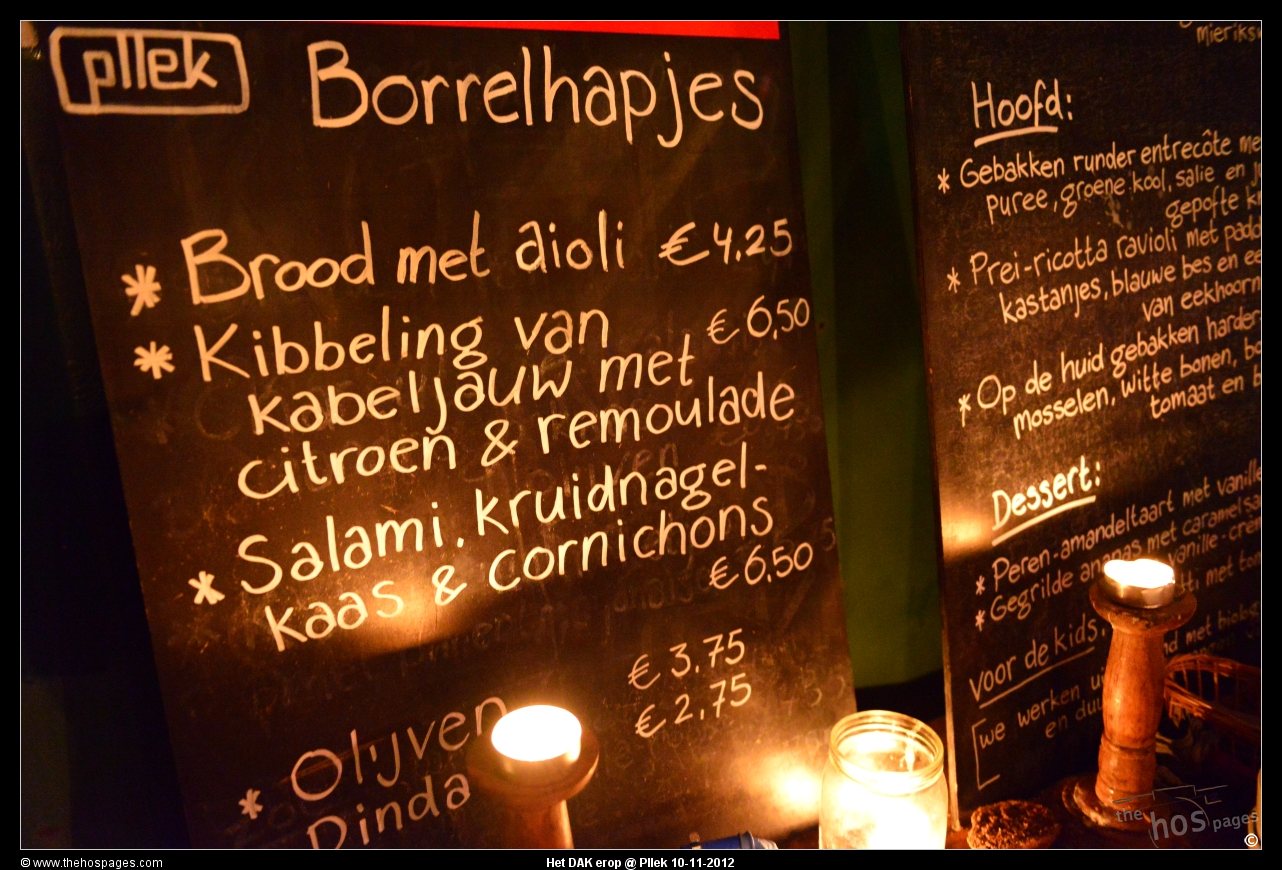 pllek
Borrelhapjes
* Brood met aioli €4,25
* Kibbeling van €6,50
kabeljauw met
citroen & remoulade
* Salami, kruidnagel-
kaas & cornichons
€6,50
€3,75
* Olijven
€2,75
Pinda
Hoofd:
* Gebakken runder entrecôte me
puree, groene kool, salie en
gepofte
* Prei-ricotta ravioli met padd
kastanjes, blauwe bes en ee
van eekhoorn
* Op de huid gebakken harder
mosselen, witte bonen, bo
tomaat en b
Dessert:
* Peren-amandeltaart met vanille
* Gegrilde ananas met caramelsa
vanille-crèm
met tom
voor de kids.
nd met biolog
[we werken
en duu
the hos pages
©
© www.thehospages.com
Het DAK erop @ Pllek 10-11-2012